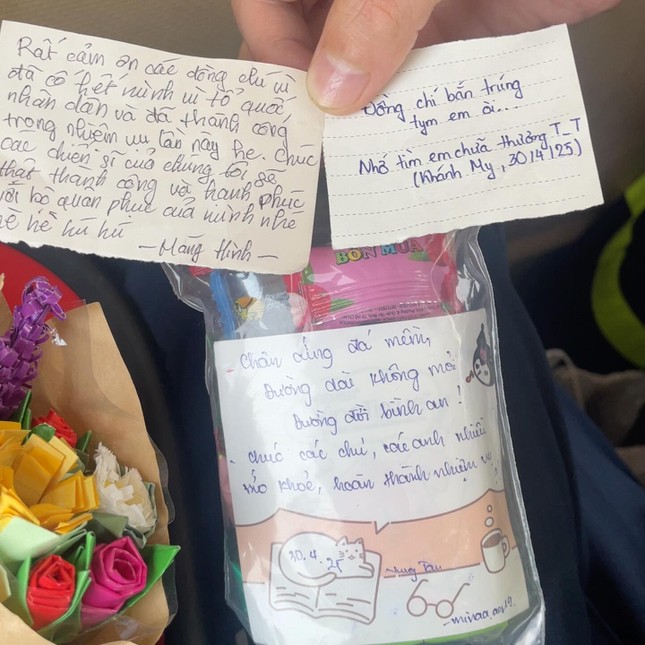 Rất cảm ơn các đồng chí vì
đã cố hết mình vì tổ quốc,
nhân dân và đã thành công
trong nhiệm vụ lần này he. Chúc
các chiến sĩ của chúng tôi sẽ
thật thành công và hạnh phúc
với bộ quân phục của mình nhé
hê hê hú hú
— Măng Hình —
Đồng chí bắn trúng
tym em òi...
Nhớ tìm em chữa thương T_T
(Khánh My, 30/4/25)
BỐN MÙA
- Chân cứng đá mềm,
Đường dài không mỏi
Đường đời bình an!
- chúc các chú, các anh nhiều
sức khoẻ, hoàn thành nhiệm vụ
30.4.
25